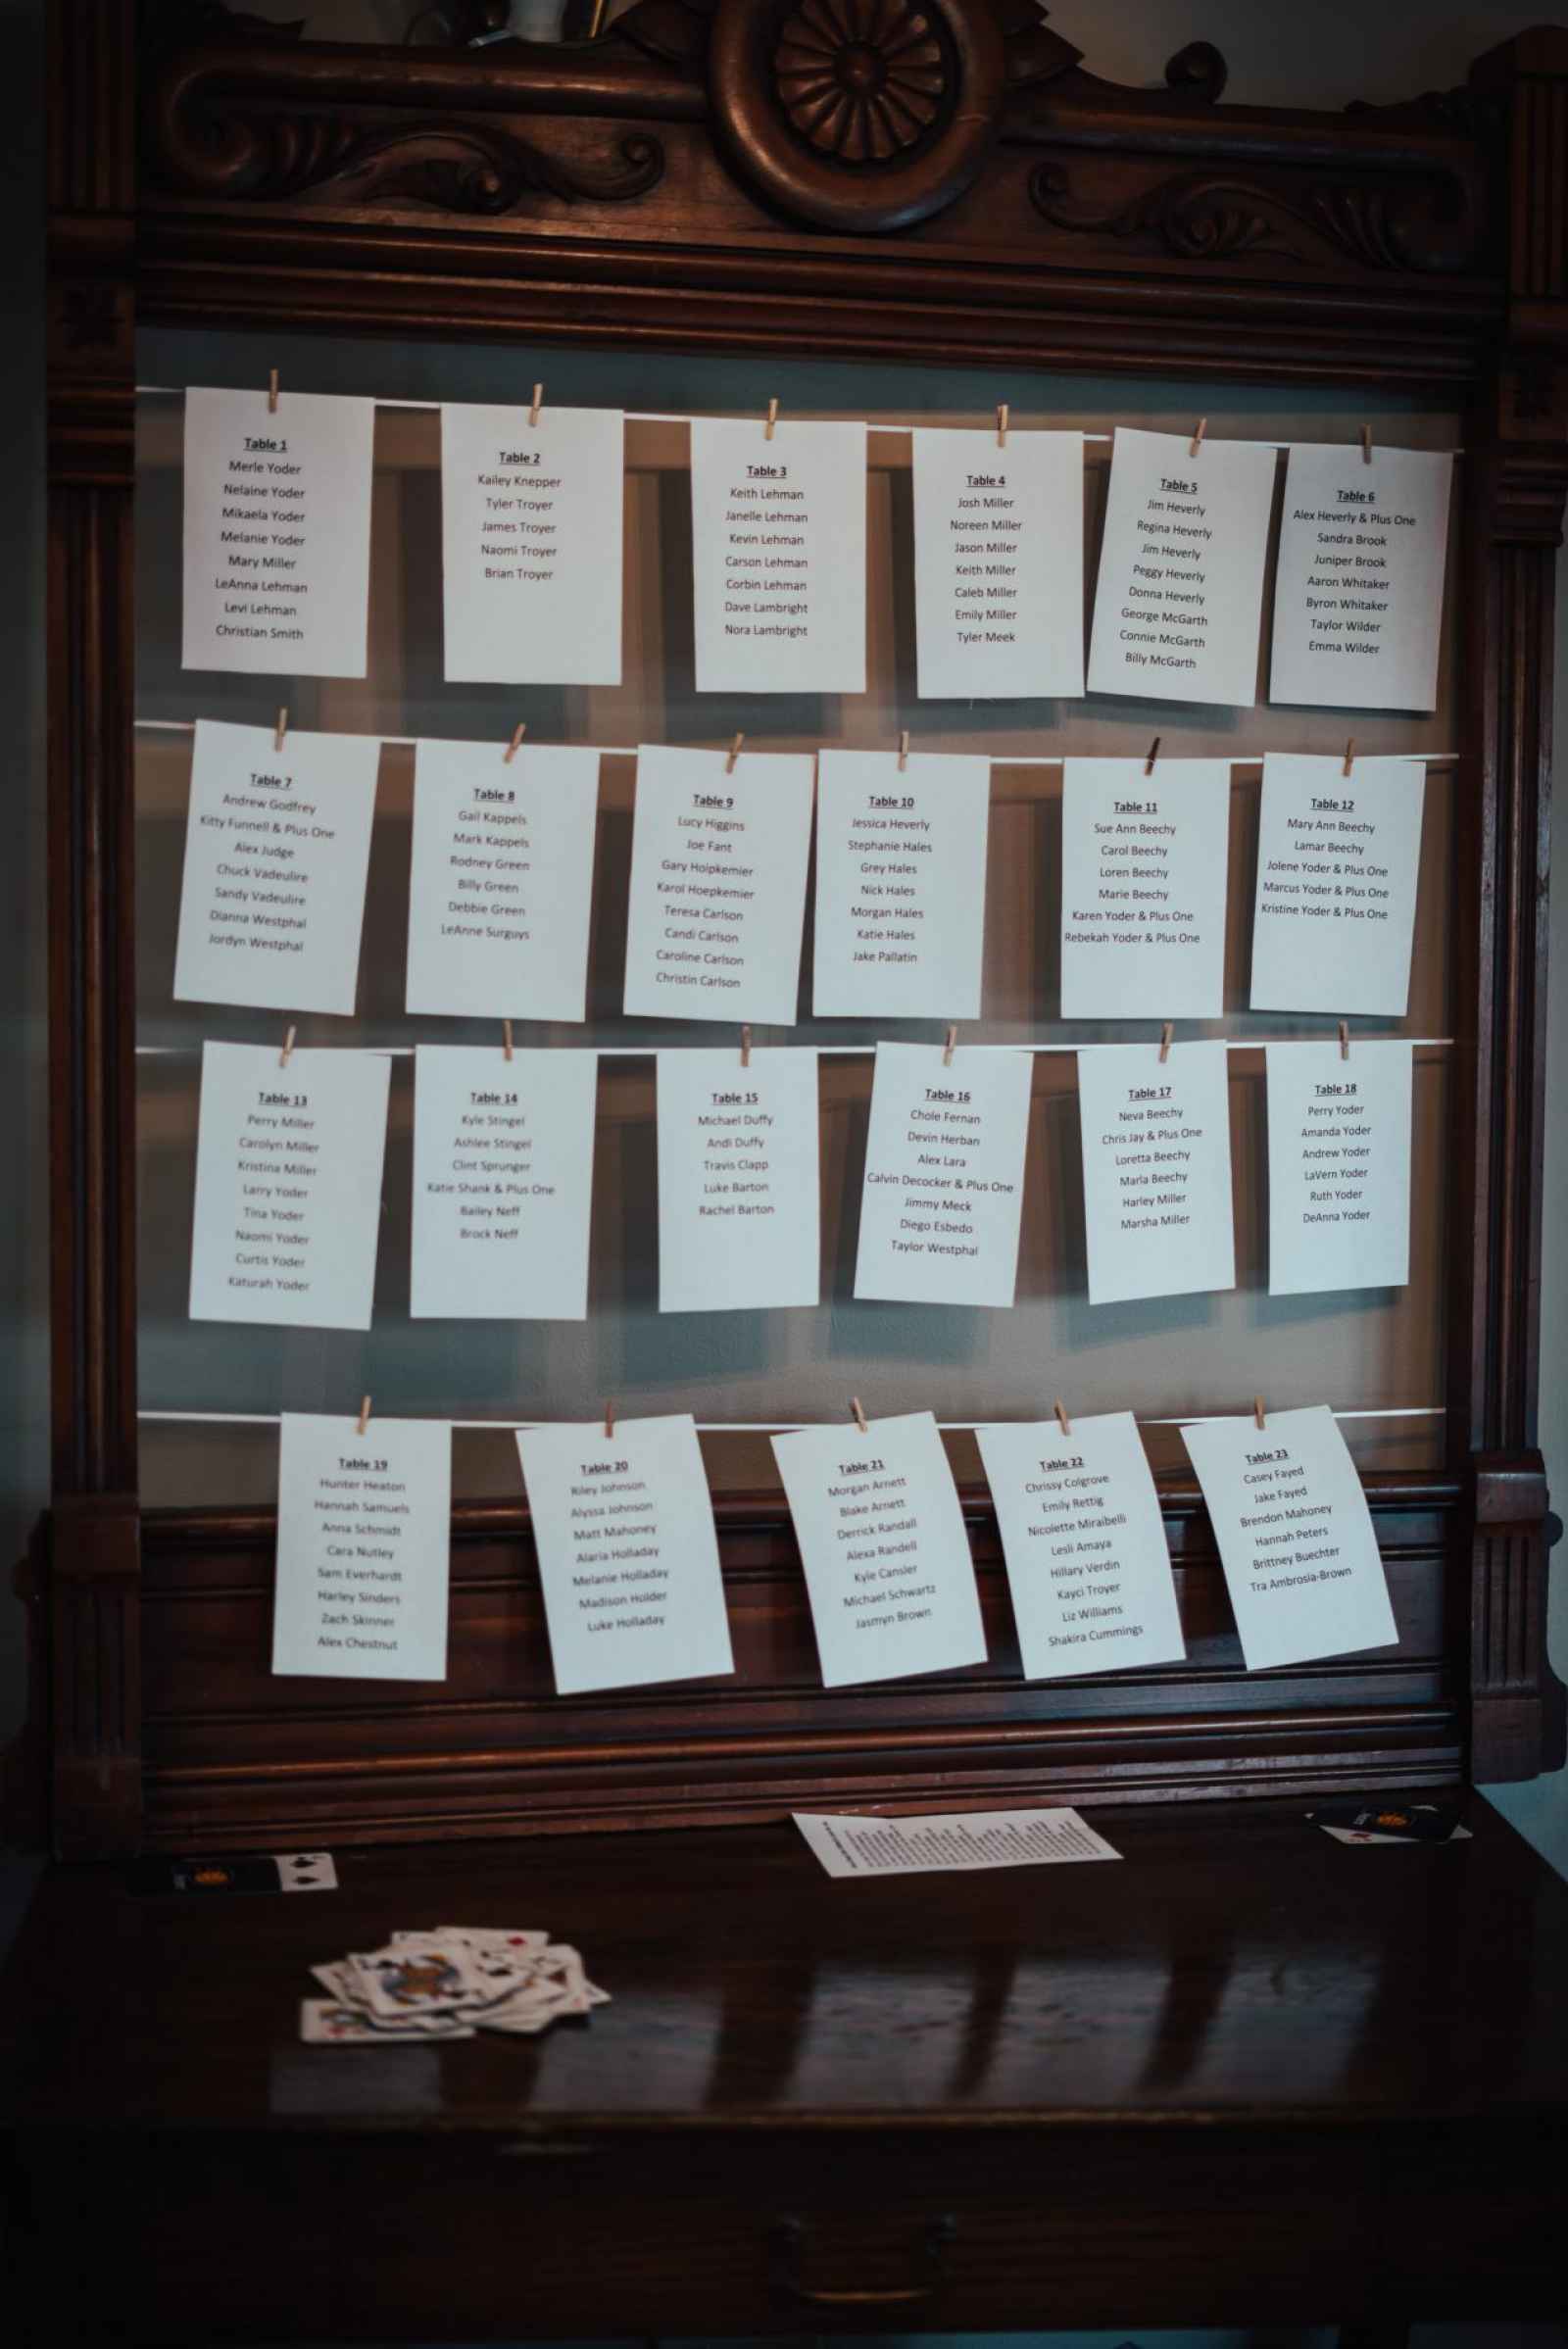 Table 1
Merle Yoder
Nelaine Yoder
Mikaela Yoder
Melanie Yoder
Mary Miller
LeAnna Lehman
Levi Lehman
Christian Smith
Table 2
Kailey Knepper
Tyler Troyer
James Troyer
Naomi Troyer
Brian Troyer
Table 3
Keith Lehman
Janelle Lehman
Kevin Lehman
Carson Lehman
Corbin Lehman
Dave Lambright
Nora Lambright
Table 4
Josh Miller
Noreen Miller
Jason Miller
Keith Miller
Caleb Miller
Emily Miller
Tyler Meek
Table 5
Jim Heverly
Regina Heverly
Jim Heverly
Peggy Heverly
Donna Heverly
George McGarth
Connie McGarth
Billy McGarth
Table 6
Alex Heverly & Plus One
Sandra Brook
Juniper Brook
Aaron Whitaker
Byron Whitaker
Taylor Wilder
Emma Wilder
Table 7
Andrew Godfrey
Kitty Funnell & Plus One
Alex Judge
Chuck Vadeulire
Sandy Vadeulire
Dianna Westphal
Jordyn Westphal
Table 8
Gail Kappels
Mark Kappels
Rodney Green
Billy Green
Debbie Green
LeAnne Surguys
Table 9
Lucy Higgins
Joe Fant
Gary Hoipkemier
Karol Hoepkemier
Teresa Carlson
Candi Carlson
Caroline Carlson
Christin Carlson
Table 10
Jessica Heverly
Stephanie Hales
Grey Hales
Nick Hales
Morgan Hales
Katie Hales
Jake Pallatin
Table 11
Sue Ann Beechy
Carol Beechy
Loren Beechy
Marie Beechy
Karen Yoder & Plus One
Rebekah Yoder & Plus One
Table 12
Mary Ann Beechy
Lamar Beechy
Jolene Yoder & Plus One
Marcus Yoder & Plus One
Kristine Yoder & Plus One
Table 13
Perry Miller
Carolyn Miller
Kristina Miller
Larry Yoder
Tina Yoder
Naomi Yoder
Curtis Yoder
Katurah Yoder
Table 14
Kyle Stingel
Ashlee Stingel
Clint Sprunger
Katie Shank & Plus One
Bailey Neff
Brock Neff
Table 15
Michael Duffy
Andi Duffy
Travis Clapp
Luke Barton
Rachel Barton
Table 16
Chole Fernan
Devin Herban
Alex Lara
Calvin Decocker & Plus One
Jimmy Meck
Diego Esbedo
Taylor Westphal
Table 17
Neva Beechy
Chris Jay & Plus One
Loretta Beechy
Marla Beechy
Harley Miller
Marsha Miller
Table 18
Perry Yoder
Amanda Yoder
Andrew Yoder
LaVern Yoder
Ruth Yoder
DeAnna Yoder
Table 19
Hunter Heaton
Hannah Samuels
Anna Schmidt
Cara Nutley
Sam Everhardt
Harley Sinders
Zach Skinner
Alex Chestnut
Table 20
Riley Johnson
Alyssa Johnson
Matt Mahoney
Alaria Holladay
Melanie Holladay
Madison Holder
Luke Holladay
Table 21
Morgan Arnett
Blake Arnett
Derrick Randall
Alexa Randell
Kyle Cansler
Michael Schwartz
Jasmyn Brown
Table 22
Chrissy Colgrove
Emily Rettig
Nicolette Miraibelli
Lesli Amaya
Hillary Verdin
Kayci Troyer
Liz Williams
Shakira Cummings
Table 23
Casey Fayed
Jake Fayed
Brendon Mahoney
Hannah Peters
Brittney Buechter
Tra Ambrosia-Brown